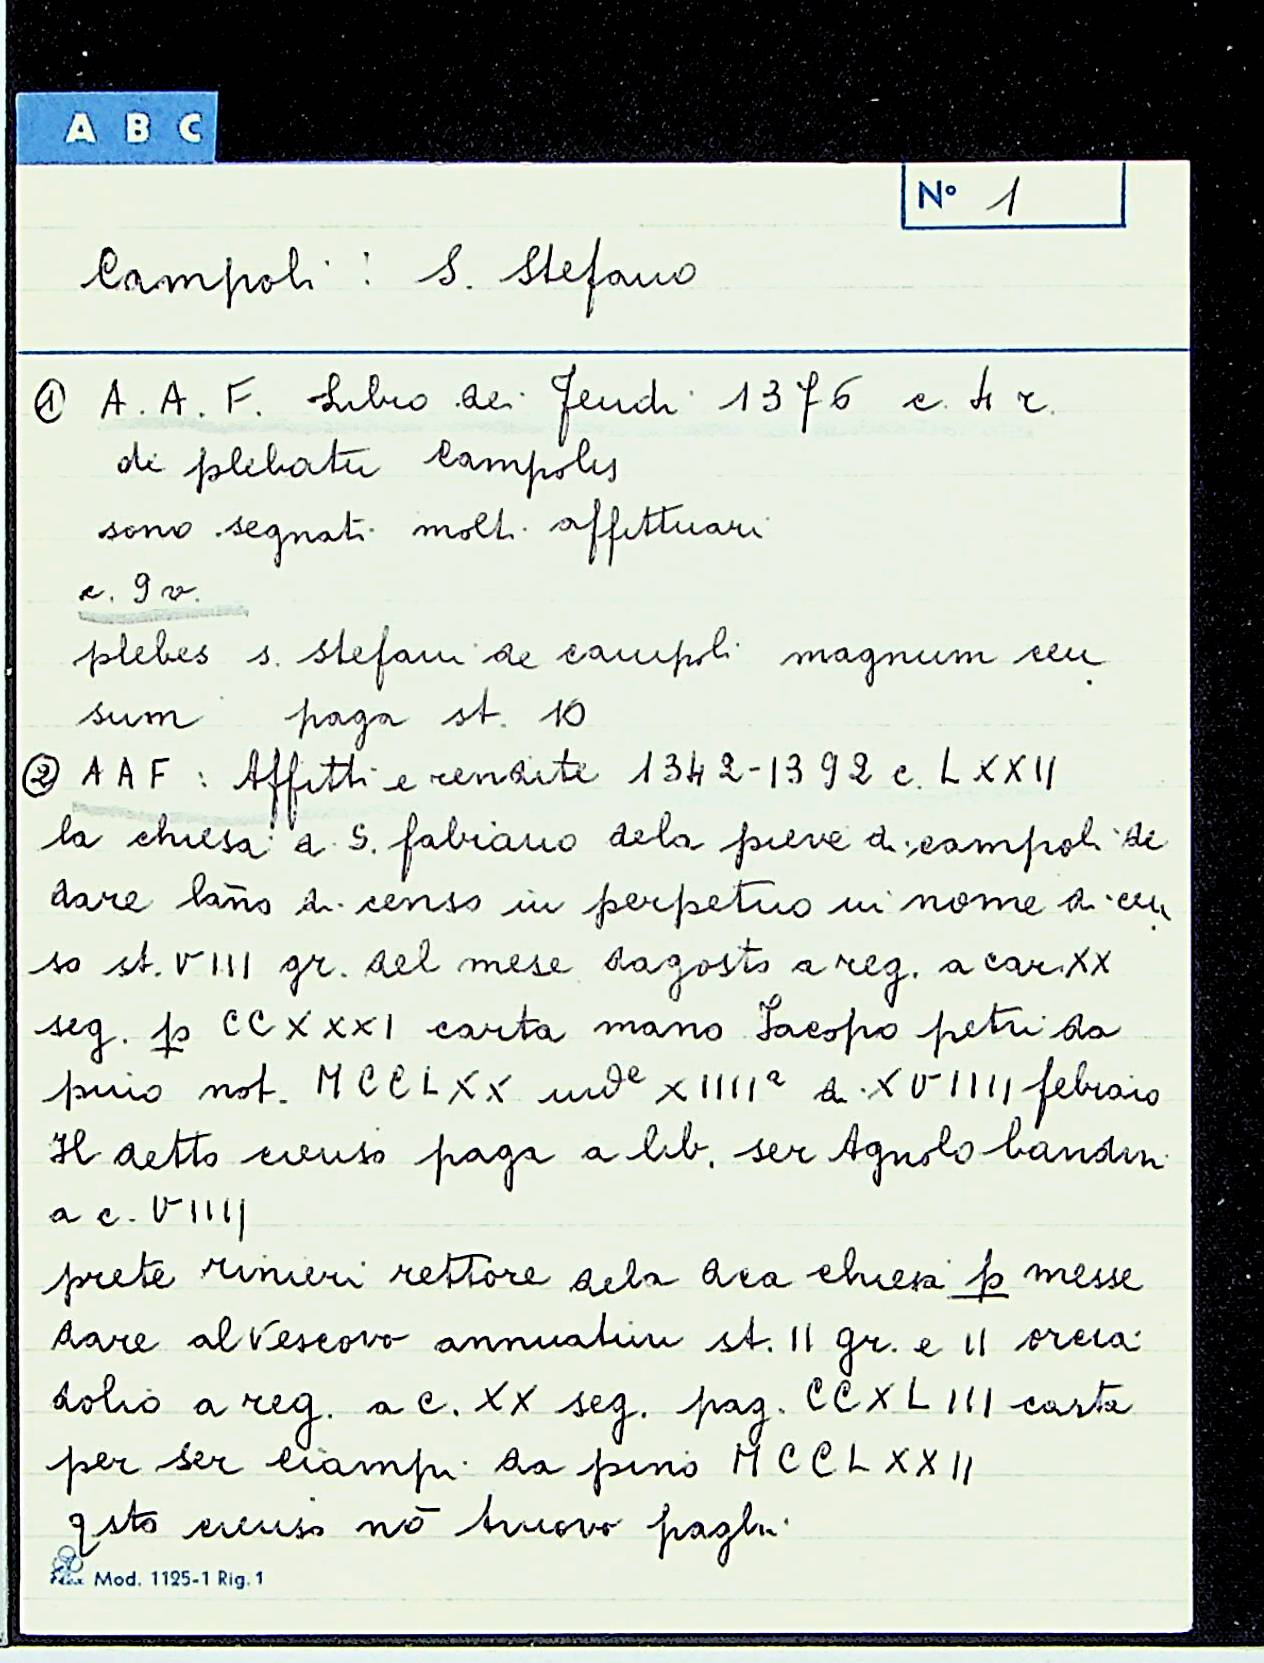 A B C
N° 1
Campoli : S. Stefano
① A. A. F. Libro dei Feudi 1376 c. 4 r.
de plebatu Campolis
sono segnati molti affittuari
c. 9 v.
plebes s. stefani de campoli magnum cen
sum paga st. 10
② A A F : Affitti e rendite 1342-1392 c. LXXII
la chiesa di S. fabiano dela pieve di campoli de
dare lan̄o di censo in perpetuo in nome di cen
so st. VIII gr. del mese dagosto a reg. a car. XX
seg. p CCXXXI carta mano Jacopo petri da
not. MCCLXX ind^e XIIII^a di XVIIII febraio
Il detto censo paga a lib. ser Agnolo bandini
a c. VIIII
prete rinieri rettore dela dca chiesa p messe
dare al Vescovo annuatim st. II gr. e II orcia
dolio a reg. a c. XX seg. pag. CCXLIII carta
per ser ciampi da MCCLXXII
qsto censo nō truovo paghi
Mod. 1125-1 Rig. 1